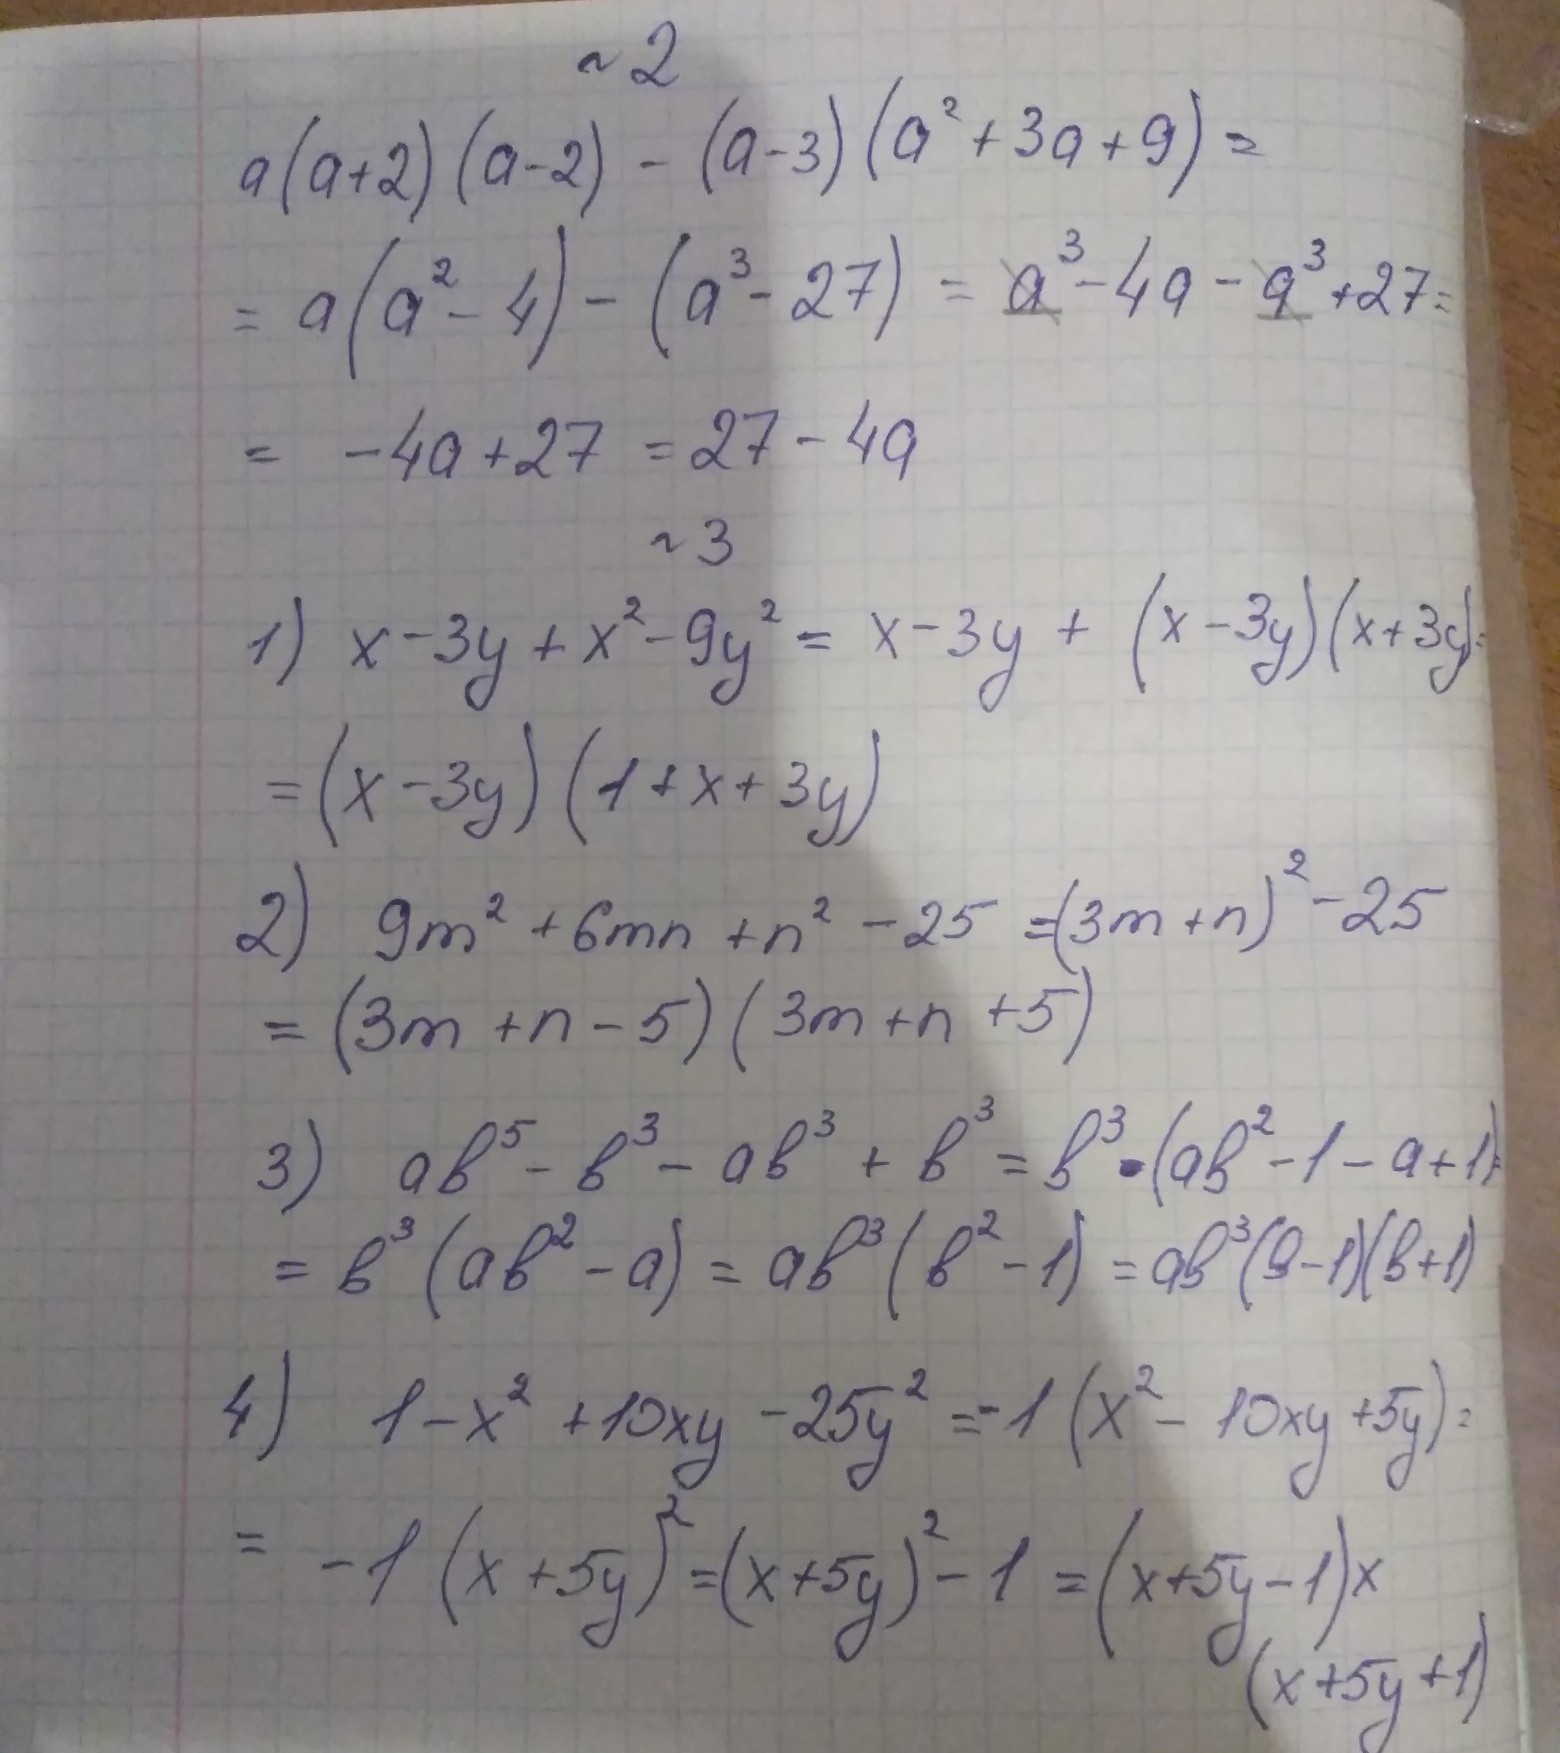 ~2
a(a+2)(a-2) - (a-3)(a²+3a+9) =
= a(a²-4) - (a³-27) = a³-4a-a³+27=
= -4a+27 = 27-4a
~3
1) x-3y+x²-9y² = x-3y + (x-3y)(x+3y)=
=(x-3y)(1+x+3y)
2) 9m²+6mn+n²-25 =(3m+n)²-25
= (3m+n-5)(3m+n+5)
3) ab⁵-b³-ab³+b³=b³·(ab²-1-a+1)=
= b³(ab²-a) = ab³(b²-1) =ab³(b-1)(b+1)
4) 1-x²+10xy-25y² =-1(x²-10xy+5y)=
= -1(x+5y)²=(x+5y)²-1 =(x+5y-1)x
(x+5y+1)